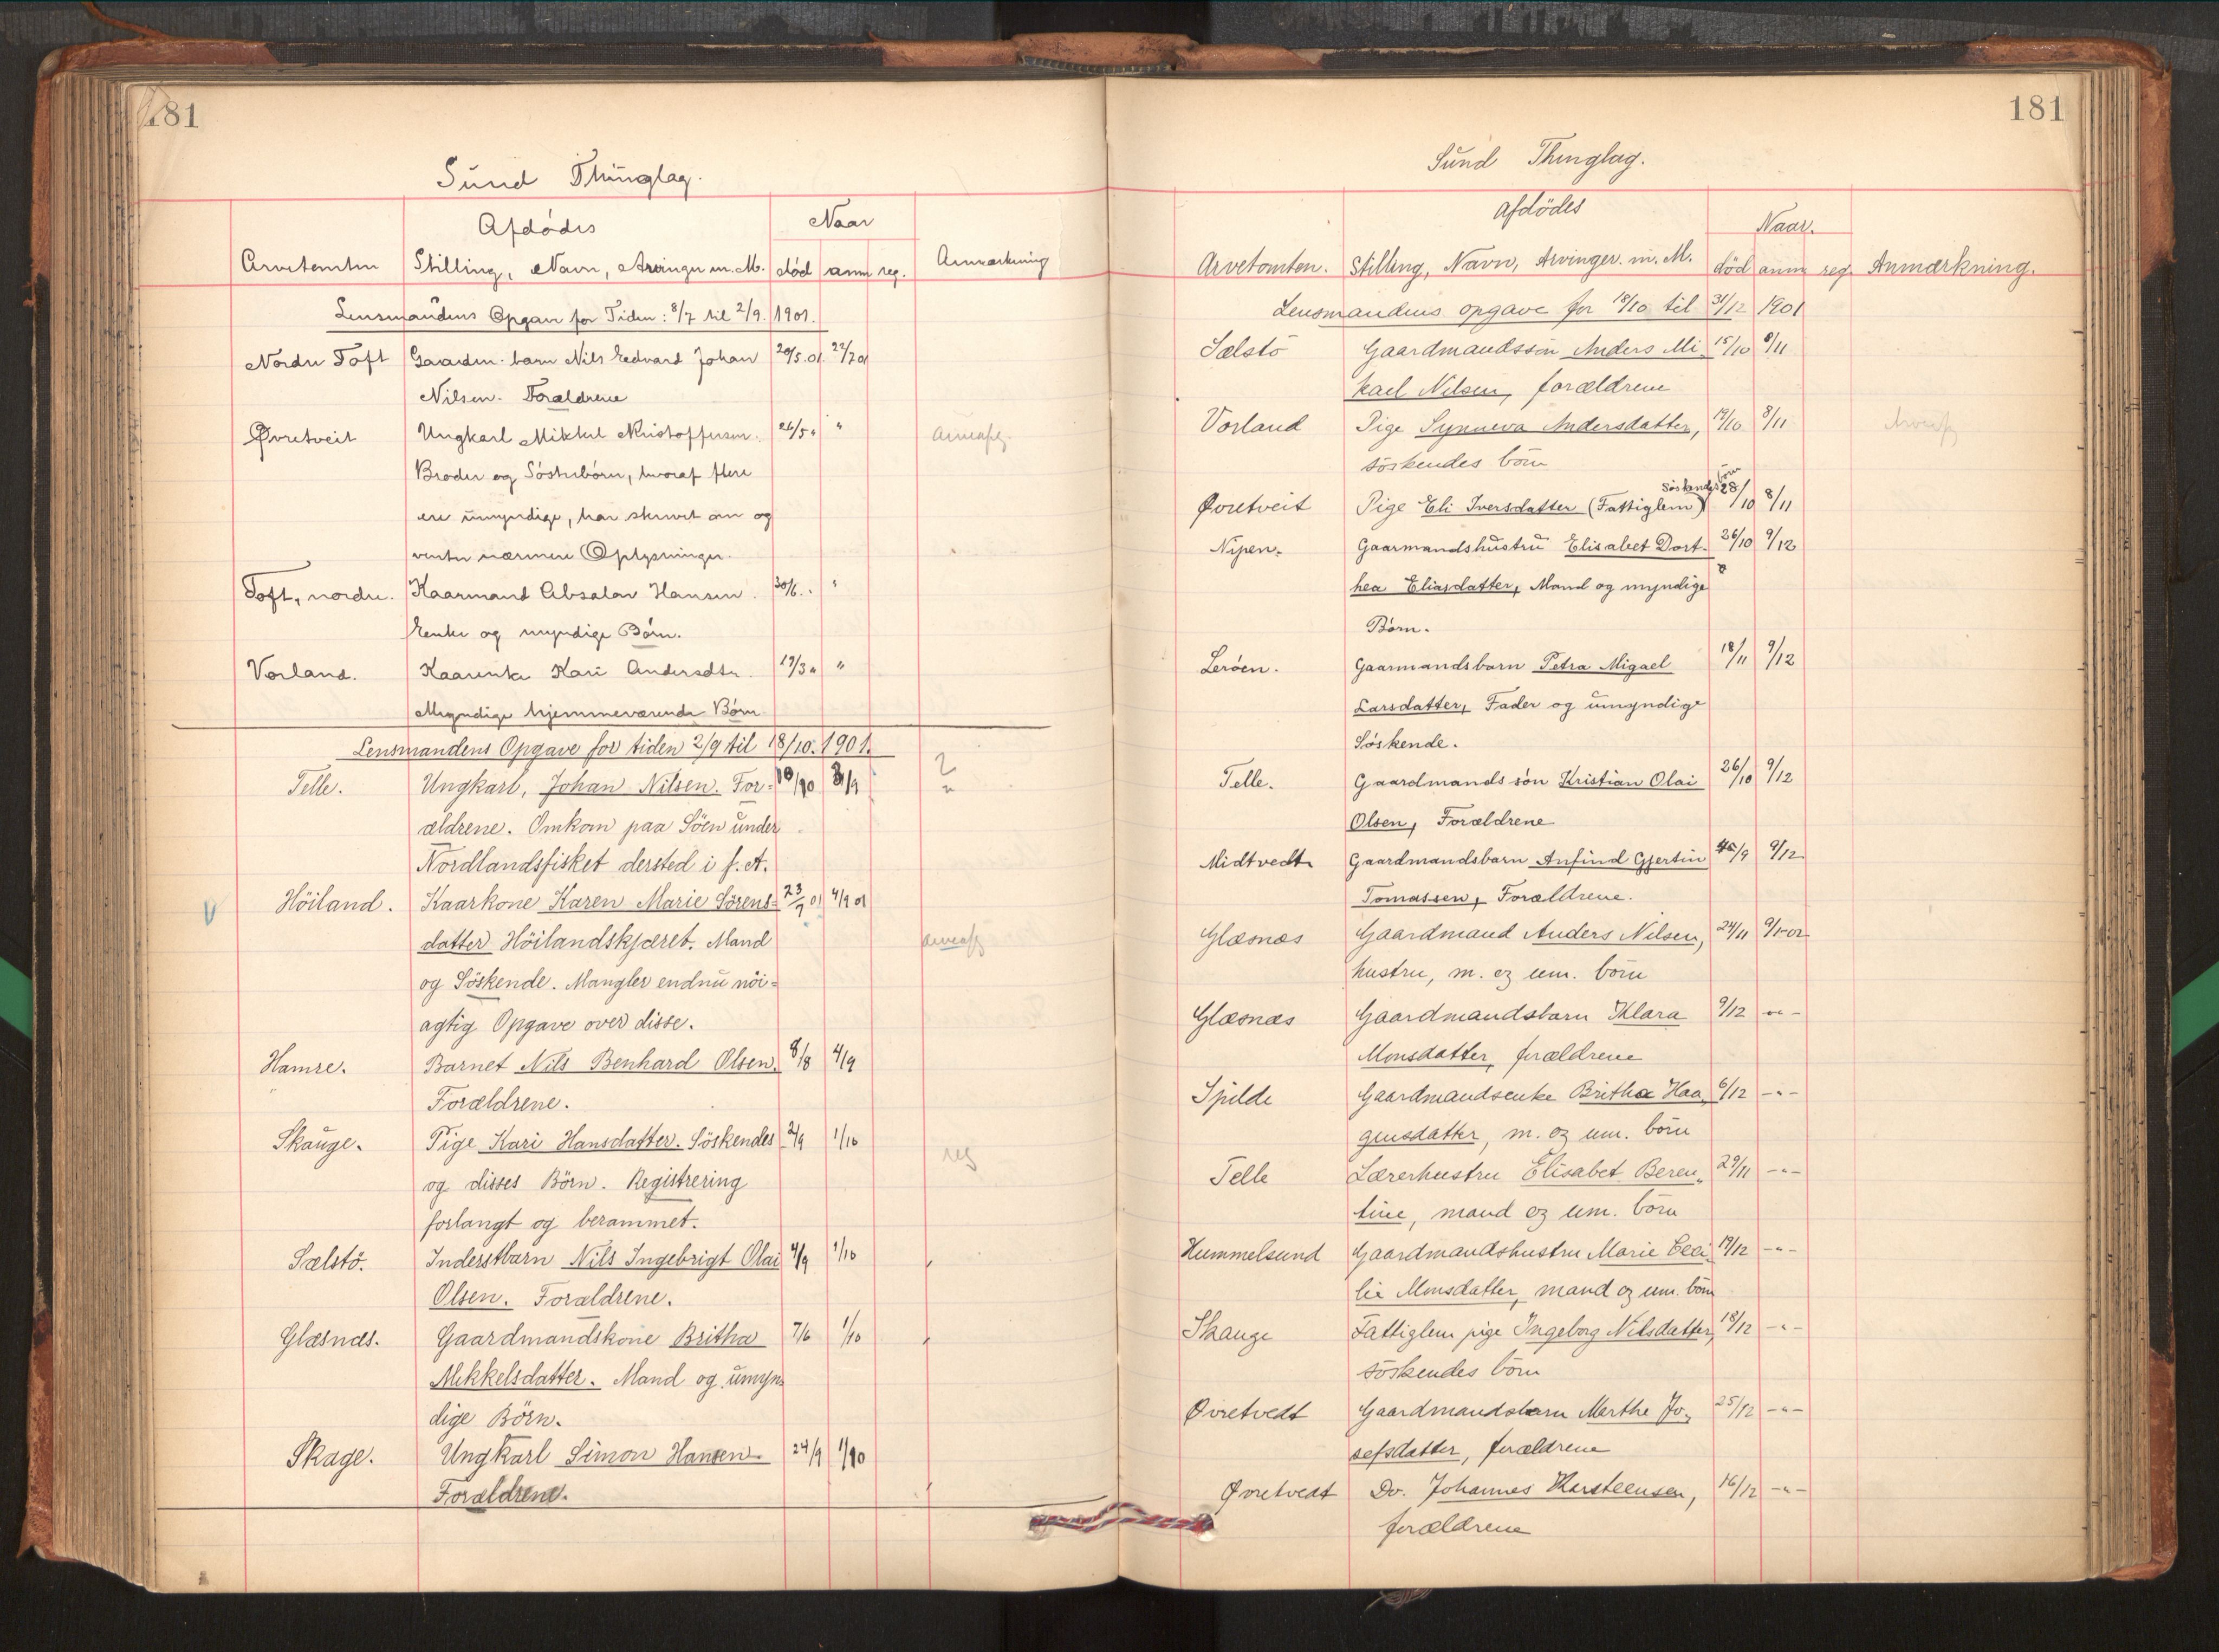 181
Sund Thinglag.
Afdødes
Naar
Arvetomten Stilling, Navn, Arvinger m. M. død anm reg. Anmærkning
Lensmandens Opgave for Tiden: 8/7 til 2/9. 1901.
Nordre Toft Gaardm. barn Nils Edvard Johan 20/5.01. 22/7 01
Nilsen. Forældrene
Øvretveit Ungkarl Mikkel Kristoffersen. 26/5 " "
Broder og Söstrebörn, hvoraf flere
ere umyndige, har skrevet om og
venter nærmere Oplysninger.
Toft, nordre. Kaarmand Absalon Hansen. 30/6. " "
Enke og myndige Börn.
Vorland. Kaarenke Kari Andersdtr. 19/3 " "
Myndige hjemmeværende Börn
Lensmandens Opgave for tiden 2/9 til 18/10. 1901.
Telle. Ungkarl, Johan Nilsen. For-
ældrene. Omkom paa Söen under
Nordlandsfisket dersted i f. A.
Höiland. Kaarkone Karen Marie Sörens= 23/7 01 4/9 01
datter Höilandskjæret. Mand
og Söskende. Mangler endnu nöi=
agtig Opgave over disse.
Hamre. Barnet Nils Benhard Olsen. 8/8 4/9
Forældrene.
Skauge. Pige Kari Hansdatter. Söskendes 2/9 1/10
reg
og disses Börn. Registrering
forlangt og berammet.
Sælstö. Inderstbarn Nils Ingebrigt Olai 4/9 1/10
Olsen. Forældrene.
Glæsnæs. Gaardmandskone Britha 7/6 1/10
Mikkelsdatter. Mand og umyn=
dige Börn.
Skage. Ungkarl Simon Hansen. 24/9 1/10
Forældrene.
181
Sund Thinglag.
Afdödes
Naar.
Arvetomten. Stilling, Navn, Arvinger. m. M. död anm reg. Anmærkning.
Lensmandens opgave for 18/10 til 31/12 1901
Sælstö Gaardmandssön Anders Mi- 15/10 6/11
kael Nilsen, forældrene
Vorland Pige Synneva Andersdatter, 19/10 8/11
söskendes börn
söskendes börn
Øvretveit Pige Eli Iversdatter (Fattiglem) 28/10 8/11
Nipen. Gaarmandshustru Elisabet Dort- 26/10 9/12
hea Eliasdatter, Mand og myndige
Börn.
Leröen. Gaarmandsbarn Petra Migael 18/11 9/12
Larsdatter, Fader og umyndige
Söskende.
Telle. Gaardmands sön Kristian Olai 26/10 9/12
Olsen, Forældrene
Midtvedt. Gaardmandsbarn Anfind Gjertin 9/12
Tomassen, Forældrene.
Glæsnæs Gaardmand Anders Nilsen, 24/11 9/1-02
hustru, m. og um. börn
Glæsnæs Gaardmandsbarn Klara 9/12 -"-
Monsdatter, forældrene
Spilde Gaardmandsenke Britha Haa- 6/12 -"-
gensdatter, m. og um. börn
Telle Lærerhustru Elisabet Beren- 29/11 -"-
tine, mand og um. börn
Hummelsund Gaardmandshustru Marie Ceci- 19/12 -"-
lie Monsdatter, mand og um. börn
Skauge Fattiglem pige Ingeborg Nilsdatter, 18/12 -"-
söskendes börn
Øvretvedt Gaardmandsbarn Marthe Jo- 25/12 -"-
sefsdatter, forældrene
Øvretvedt Do. Johannes Karsteensen, 16/12 -"-
forældrene